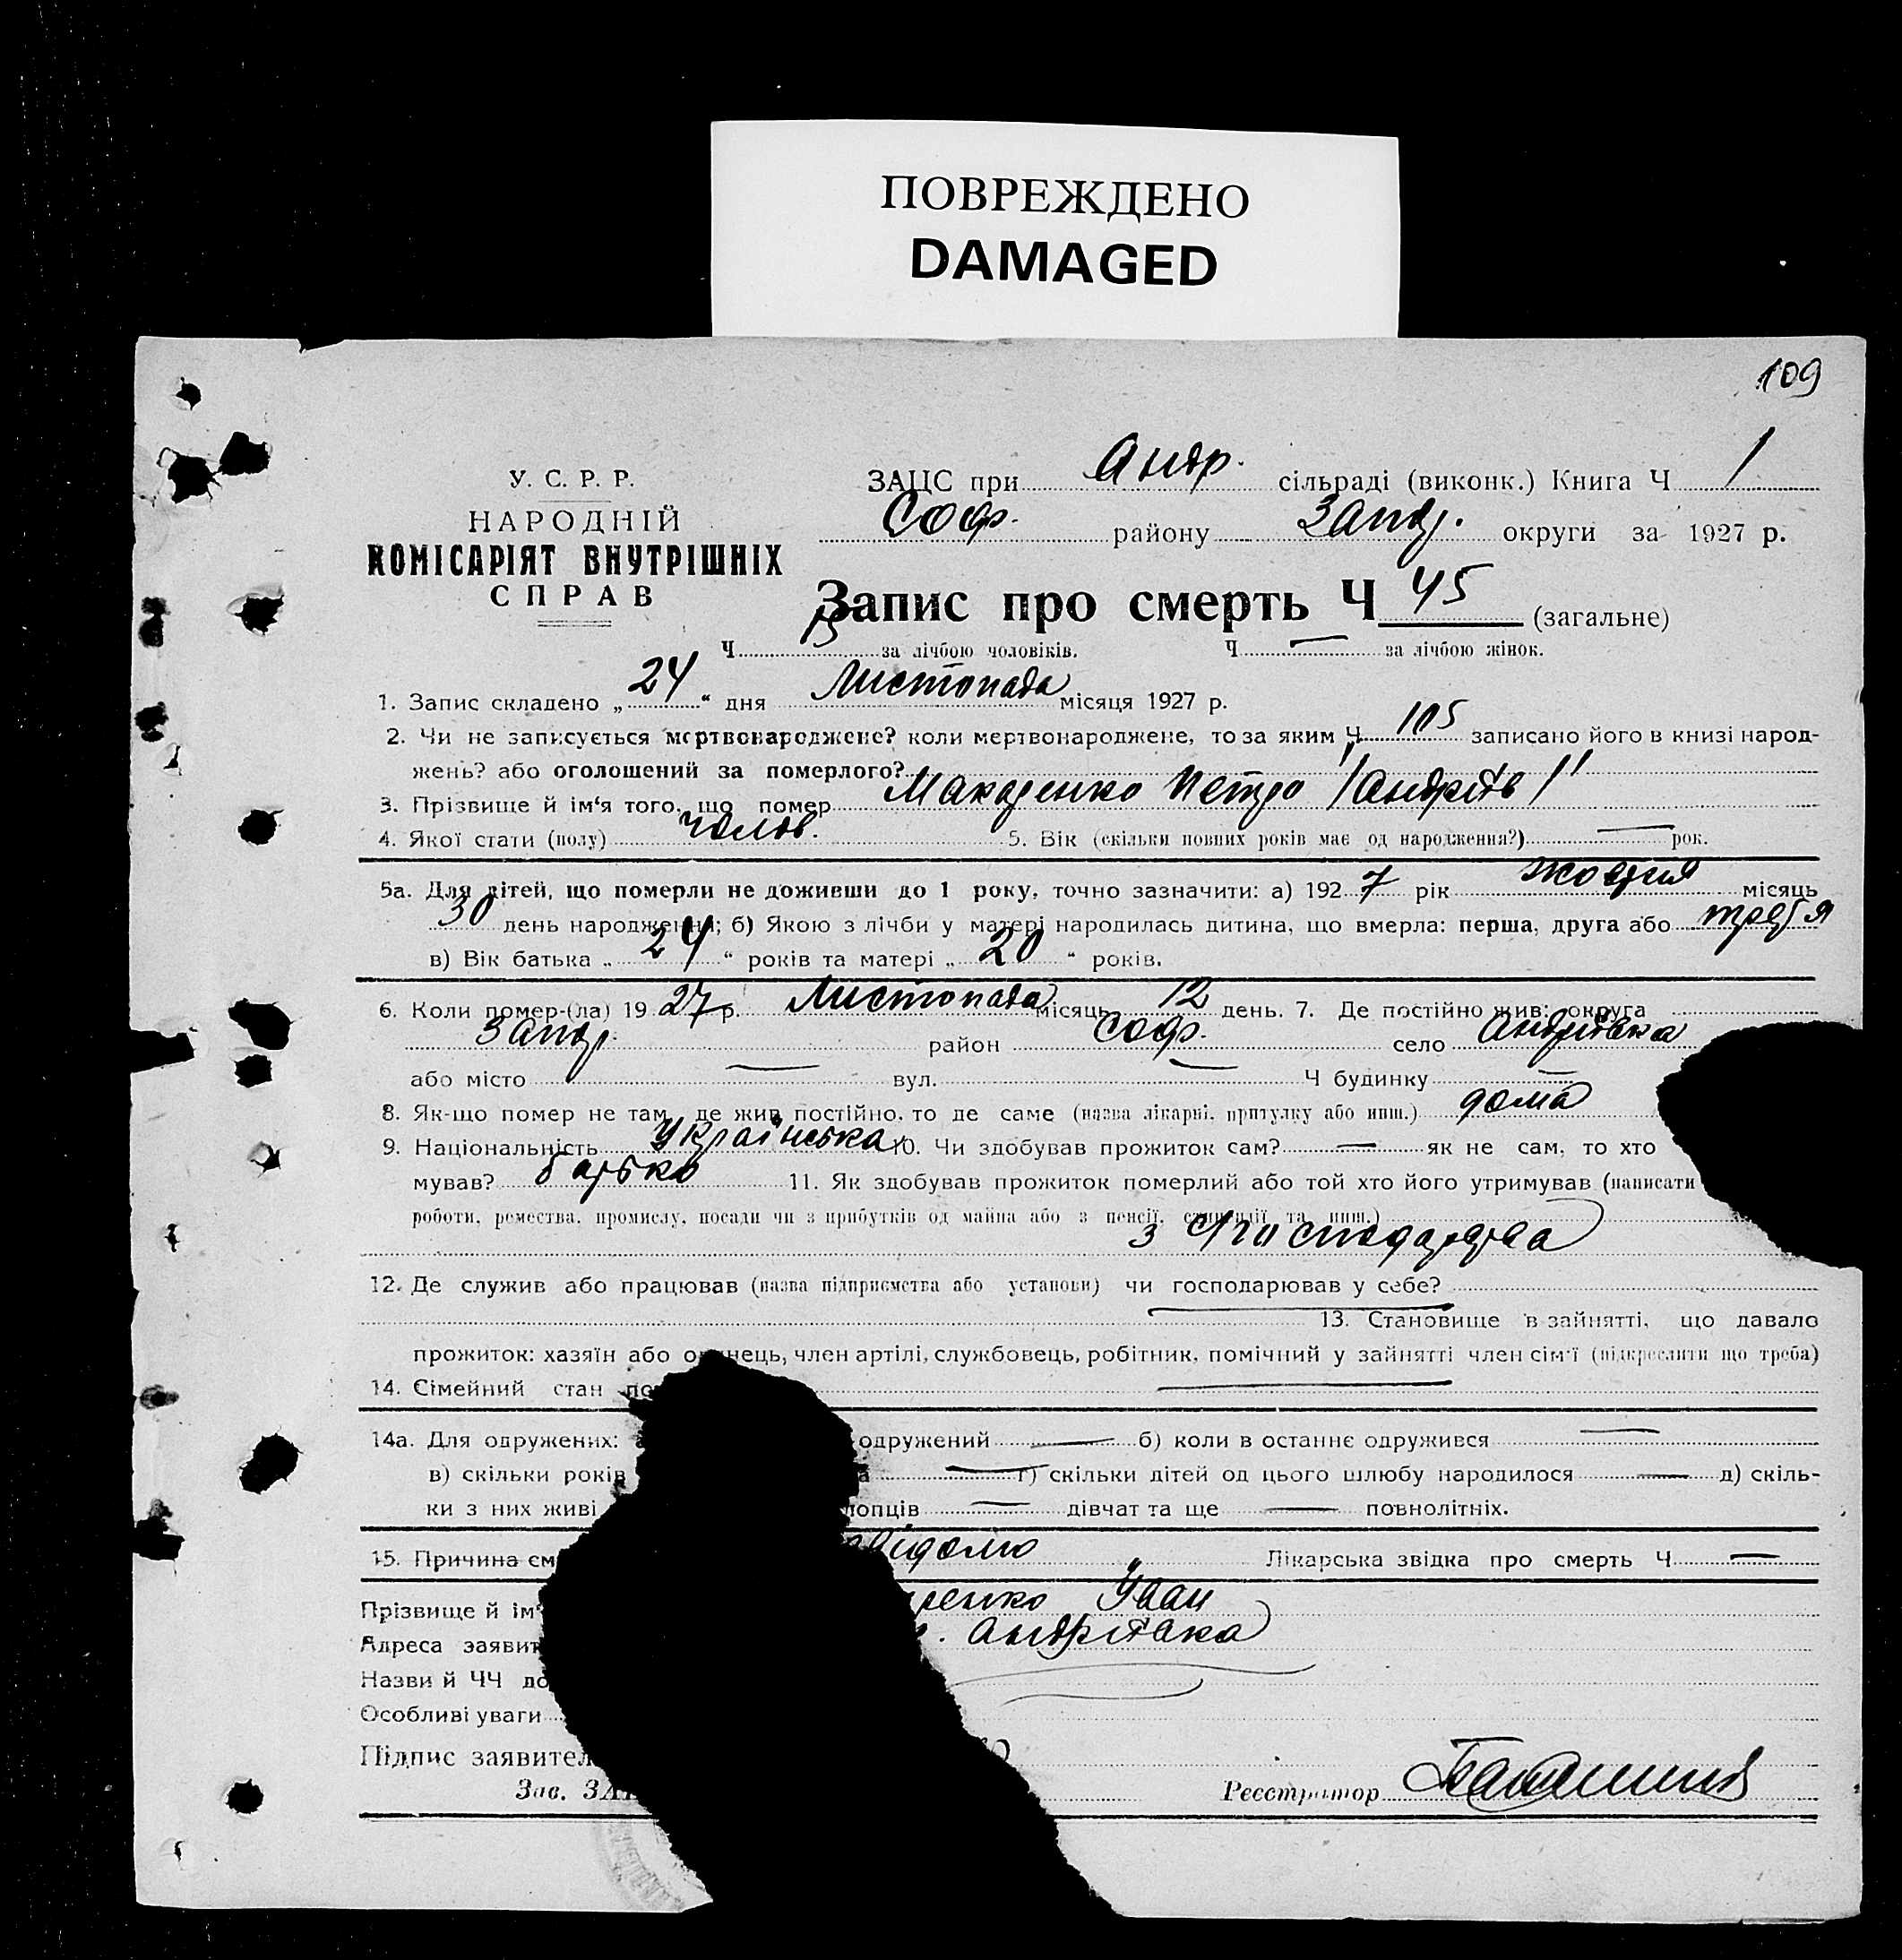 ПОВРЕЖДЕНО
DAMAGED
109
У. С. Р. Р.
НАРОДНІЙ
КОМІСАРІЯТ ВНУТРІШНІХ
СПРАВ
ЗАЦС при Андр. сільраді (виконк.) Книга Ч 1
Соф. району Запор. округи за 1927 р.
Запис про смерть Ч 45 (загальне)
Ч за лічбою чоловіків. Ч — за лічбою жінок.
1. Запис складено „24“ дня Листопада місяця 1927 р.
2. Чи не записується мертвонароджене? коли мертвонароджене, то за яким Ч 105 записано його в книзі народ-
жень? або оголошений за померлого?
3. Прізвище й ім‘я того, що помер Макаренко Петро /Андріїв/
4. Якої стати (полу) чолов. 5. Вік (скільки повних років має од народження?) — рок.
5а. Для дітей, що померли не доживши до 1 року, точно зазначити: а) 1927 рік жовтня місяць
30 день народження; б) Якою з лічби у матері народилась дитина, що вмерла: перша, друга або третя
в) Вік батька „24“ років та матері „20“ років.
6. Коли помер-(ла) 1927 р. Листопада місяць 12 день. 7. Де постійно жив: округа
Запор. район Соф. село Андріївка
або місто — вул. — Ч будинку —
8. Як-що помер не там, де жив постійно, то де саме (назва лікарні, притулку або инш.) дома
9. Національність Українська 10. Чи здобував прожиток сам? — як не сам, то хто
мував? батько 11. Як здобував прожиток померлий або той хто його утримував (написати
роботи, ремества, промислу, посади чи з прибутків од майна або з пенсії, стипендії та инш.)
з господарства
12. Де служив або працював (назва підприємства або установи) чи господарював у себе?
— 13. Становище в зайнятті, що давало
прожиток: хазяїн або о нець, член артілі, службовець, робітник, помічний у зайнятті член сім‘ї (підкреслити що треба)
14. Сімейний стан по —
14а. Для одружених: одружений — б) коли в останнє одружився —
в) скільки років а — г) скільки дітей од цього шлюбу народилося — д) скіль-
ки з них живі лопців — дівчат та ще — повнолітніх.
15. Причина см відомо Лікарська звідка про смерть Ч —
Прізвище й ім‘ ренко Іван
Адреса заявит . Андріївка
Назви й ЧЧ до
Особливі уваги
Підпис заявител
Зав. ЗА Реєстратор